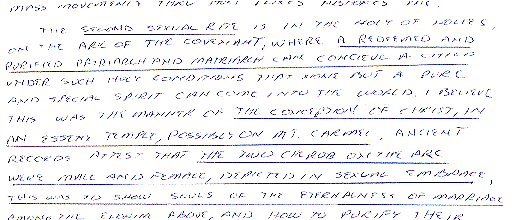 MASS MOVEMENTS THAT
THE SECOND SEXUAL RITE IS IN THE HOLY OF HOLIES,
ON THE ARC OF THE COVENANT, WHERE A REDEEMED AND
PURIFIED PATRIARCH AND MATRIARCH CAN CONCIEVE A CHILD
UNDER SUCH HOLY CONDITIONS THAT NONE BUT A PURE
AND SPECIAL SPIRIT CAN COME INTO THE WORLD. I BELIEVE
THIS WAS THE MANNER OF THE CONCEPTION OF CHRIST, IN
AN ESSENE TEMPLE, POSSIBLY ON MT. CARMEL, ANCIENT
RECORDS ATTEST THAT THE TWO CHEROB ON THE ARC
WERE MALE AND FEMALE, DEPICTED IN SEXUAL EMBRACE,
THIS WAS TO SHOW SOULS OF THE ETERNALNESS OF MARRIAGE
AMONG THE ELOHIM ABOVE, AND HOW TO PURIFY THEIR